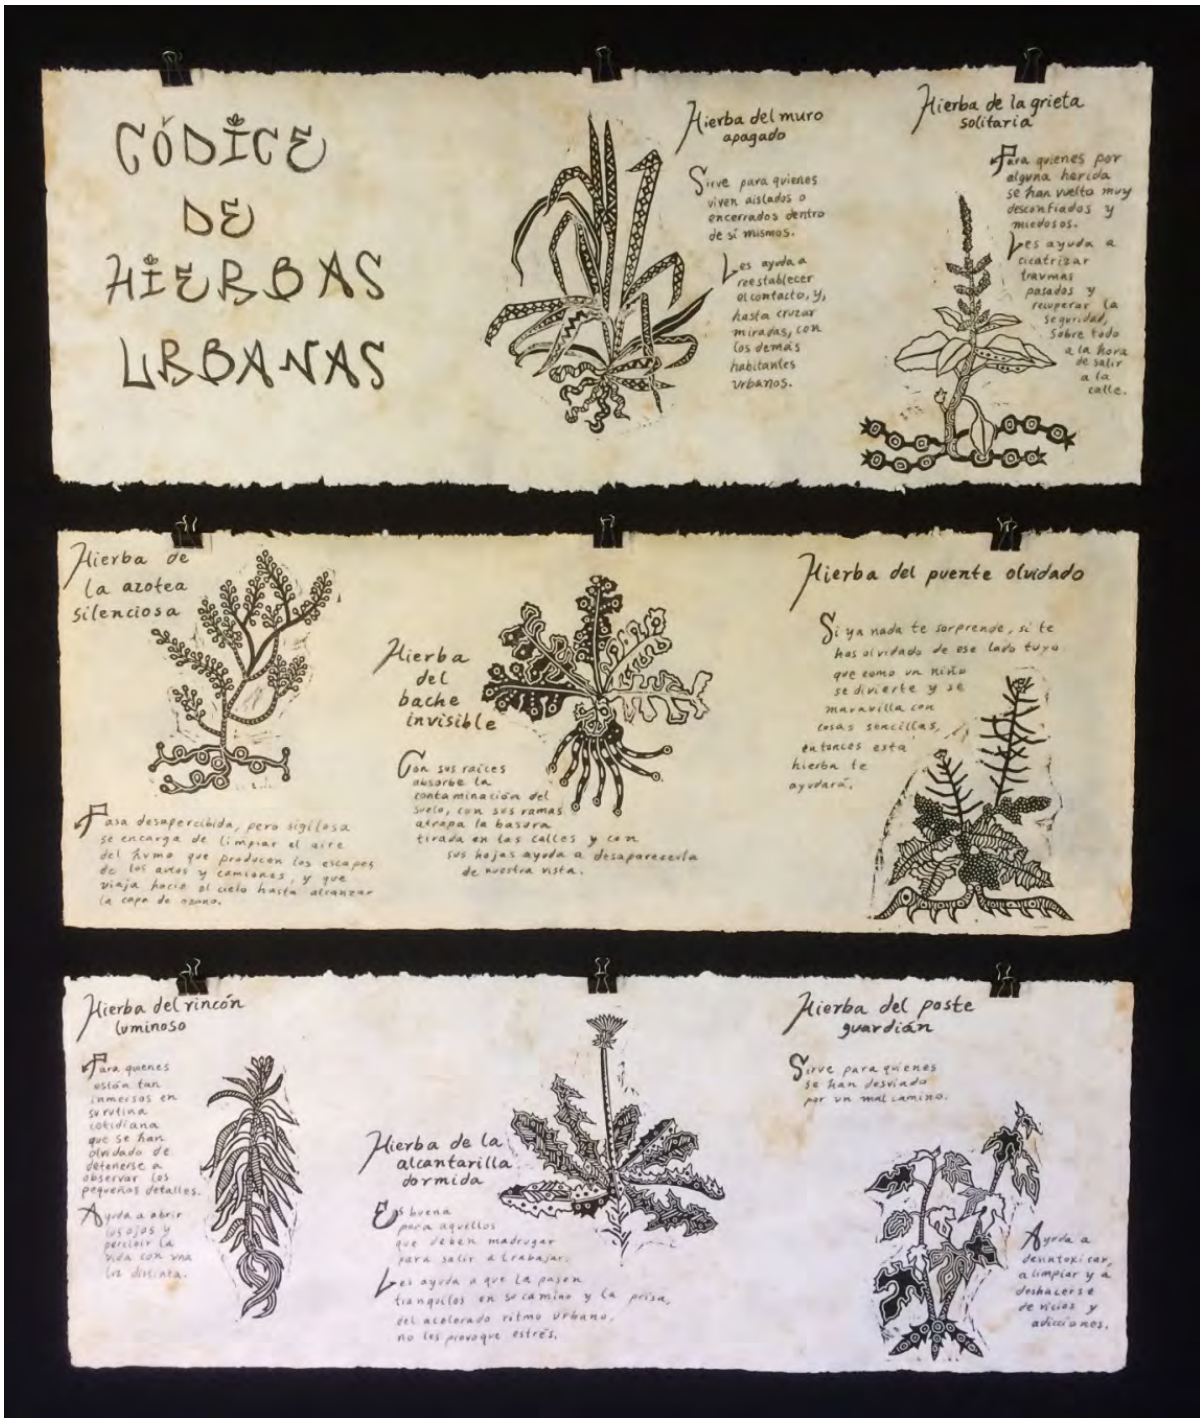 CÓDICE
DE
HIERBAS
URBANAS
Hierba del muro
apagado
Sirve para quienes
viven aislados o
encerrados dentro
de sí mismos.
Les ayuda a
reestablecer
el contacto, y,
hasta cruzar
miradas, con
los demás
habitantes
urbanos.
Hierba de la grieta
solitaria
Para quienes por
alguna herida
se han vuelto muy
desconfiados y
miedosos.
Les ayuda a
cicatrizar
traumas
pasados y
recuperar la
seguridad,
sobre todo
a la hora
de salir
a la
calle.
Hierba de
la azotea
silenciosa
Pasa desapercibida, pero sigilosa
se encarga de limpiar el aire
del humo que producen los escapes
de los autos y camiones, y que
viaja hacia el cielo hasta alcanzar
la capa de ozono.
Hierba
del
bache
invisible
Con sus raíces
absorbe la
contaminación del
suelo, con sus ramas
atrapa la basura
tirada en las calles y con
sus hojas ayuda a desaparecerla
de nuestra vista.
Hierba del puente olvidado
Si ya nada te sorprende, si te
has olvidado de ese lado tuyo
que como un niño
se divierte y se
maravilla con
cosas sencillas,
entonces esta
hierba te
ayudará.
Hierba del rincón
luminoso
Para quienes
están tan
inmersos en
su rutina
cotidiana
que se han
olvidado de
detenerse a
observar los
pequeños detalles.
Ayuda a abrir
los ojos y
percibir la
vida con una
luz distinta.
Hierba de la
alcantarilla
dormida
Es buena
para aquellos
que deben madrugar
para salir a trabajar.
Les ayuda a que la pasen
tranquilos en su camino y la prisa,
del acelorado ritmo urbano,
no les provoque estrés.
Hierba del poste
guardián
Sirve para quienes
se han desviado
por un mal camino.
Ayuda a
desintoxicar,
a limpiar y a
deshacerse
de vicios y
adicciones.